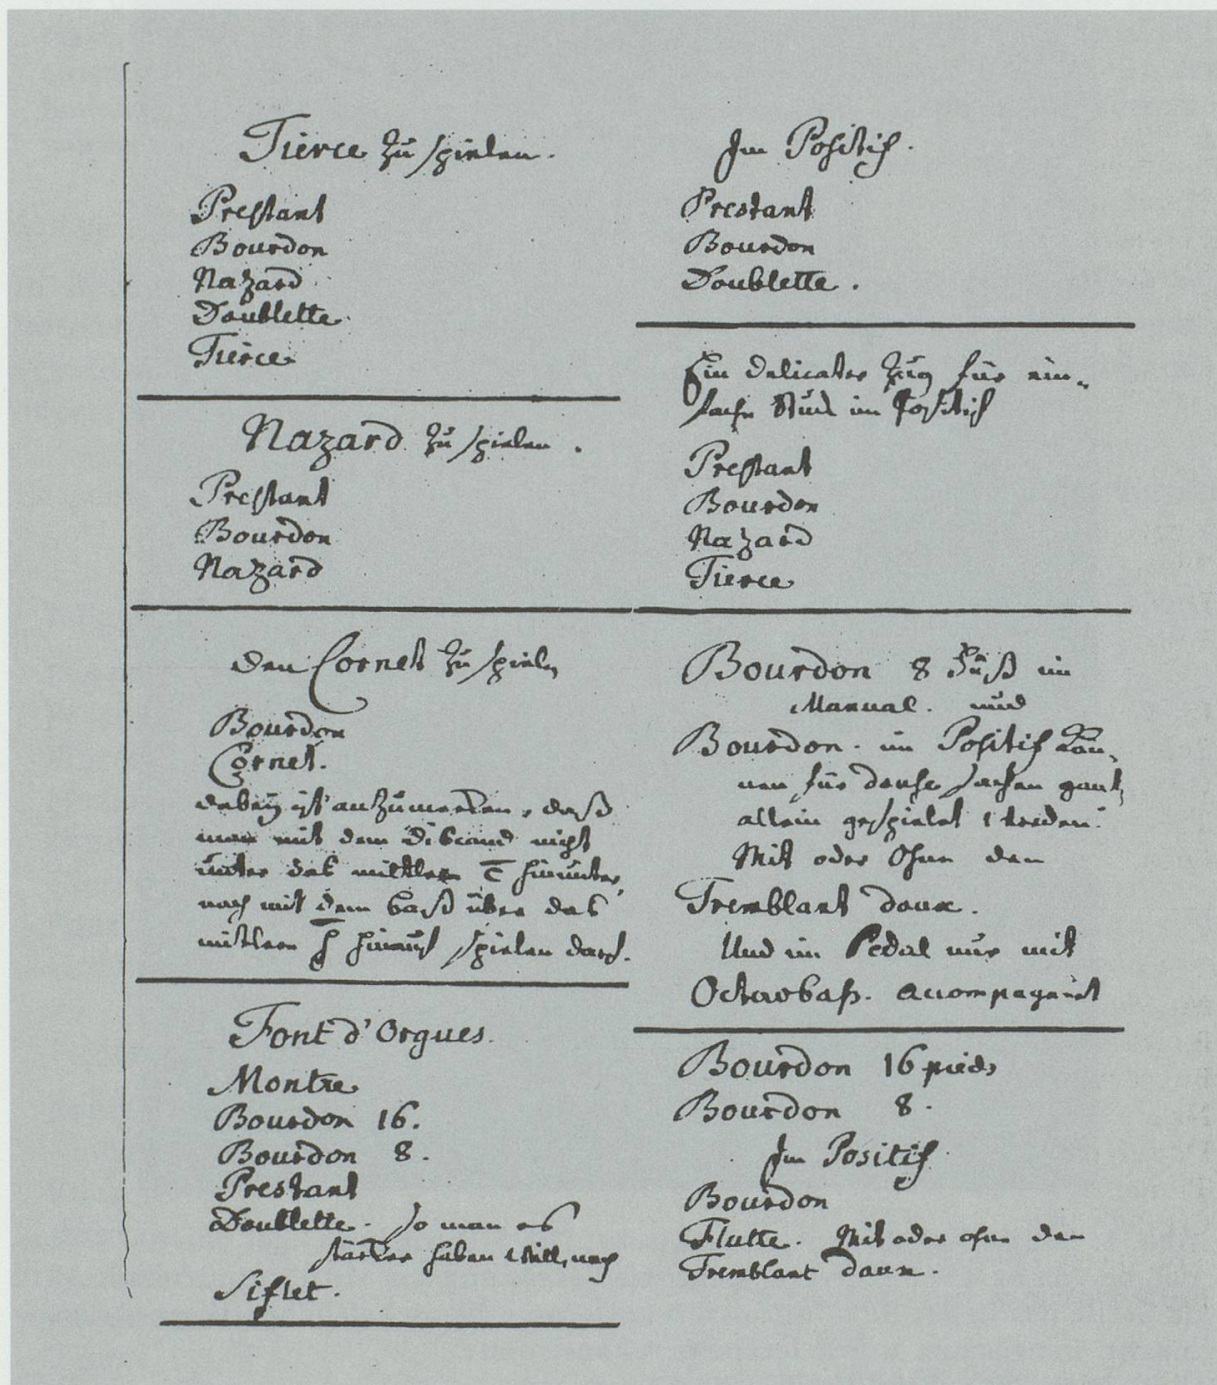 Tierce zu spielen.
Prestant
Bourdon
Nazard
Doublette
Tierce
Nazard zu spielen.
Prestant
Bourdon
Nazard
den Cornet zu spielen
Bourdon
Cornet.
dabey ist anzumerken, daß
man mit dem Discand nicht
unter das mittlere c hinunter,
noch mit dem Baß über das
mittlere h hinauf spielen darf.
Font d'Orgues.
Montre
Bourdon 16.
Bourdon 8.
Prestant
Doublette. so man es
stärker haben will, noch
Siflet.
Im Positif.
Prestant
Bourdon
Doublette.
Ein delicater Zug für ein-
fache Stück im Positif
Prestant
Bourdon
Nazard
Tierce
Bourdon 8 Fuß im
Manual. und
Bourdon. im Positif kön-
nen für sachen gantz
allein gespielet werden.
Mit oder Ohne den
Tremblant doux.
Und im Pedal nur mit
Octavbaß. accompagnirt
Bourdon 16 pieds
Bourdon 8.
Im Positif
Bourdon
Flutte. Mit oder ohne den
Tremblant doux.